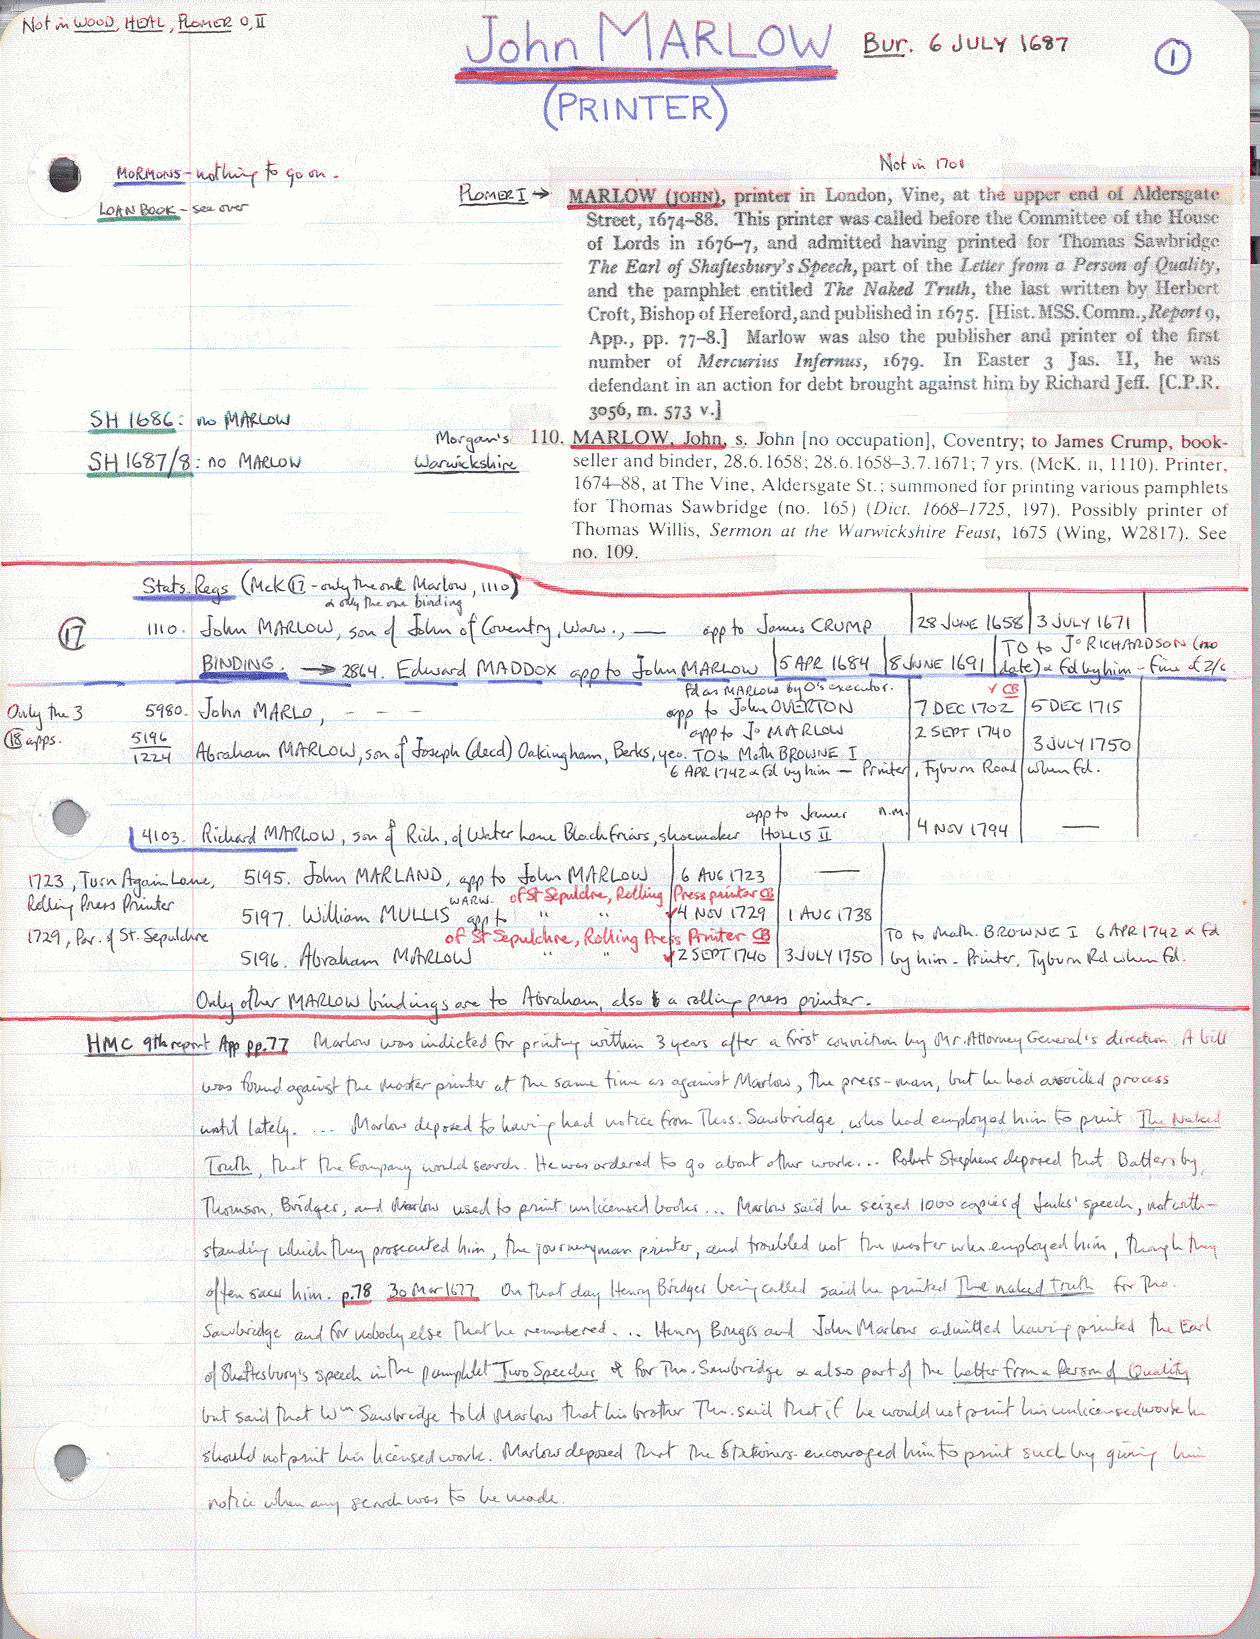 Not in WOOD, HEAL, PLOMER O, II
John MARLOW
Bur. 6 JULY 1687
1
(PRINTER)
MORMONS - nothing to go on.
LOAN BOOK - see over
Not in 1701
PLOMER I →
MARLOW (JOHN), printer in London, Vine, at the upper end of Aldersgate
Street, 1674–88. This printer was called before the Committee of the House
of Lords in 1676–7, and admitted having printed for Thomas Sawbridge
The Earl of Shaftesbury's Speech, part of the Letter from a Person of Quality,
and the pamphlet entitled The Naked Truth, the last written by Herbert
Croft, Bishop of Hereford, and published in 1675. [Hist. MSS. Comm., Report 9,
App., pp. 77–8.] Marlow was also the publisher and printer of the first
number of Mercurius Infernus, 1679. In Easter 3 Jas. II, he was
defendant in an action for debt brought against him by Richard Jeff. [C.P.R.
3056, m. 573 v.]
SH 1686: no MARLOW
SH 1687/8: no MARLOW
Morgan's
Warwickshire
110. MARLOW, John, s. John [no occupation], Coventry; to James Crump, book-
seller and binder, 28.6.1658; 28.6.1658–3.7.1671; 7 yrs. (McK. II, 1110). Printer,
1674–88, at The Vine, Aldersgate St.; summoned for printing various pamphlets
for Thomas Sawbridge (no. 165) (Dict. 1668–1725, 197). Possibly printer of
Thomas Willis, Sermon at the Warwickshire Feast, 1675 (Wing, W2817). See
no. 109.
Stats. Regs (McK 17 - only the one Marlow, 1110)
& only the one binding
17
1110. John MARLOW, son of John of Coventry, Warw., — app to James CRUMP 28 JUNE 1658 3 JULY 1671
BINDING. → 2864. Edward MADDOX app to John MARLOW 5 APR 1684 8 JUNE 1691 TO to Jo RICHARDSON (no
date) & fd by him - fine of 2/6
fd as MARLOW by O's executor.
Only the 3
18 apps.
5980. John MARLO, - - - app to John OVERTON 7 DEC 1702 ✓ CB 5 DEC 1715
app to Jo MARLOW 2 SEPT 1740
5196
1224
Abraham MARLOW, son of Joseph (decd) Oakingham, Berks, yeo. TO to Math BROWNE I 3 JULY 1750
6 APR 1742 & fd by him — Printer, Tyburn Road when fd.
4103. Richard MARLOW, son of Rich, of Water Lane Blackfriars, shoemaker app to James HOLLIS II n.m. 4 NOV 1794 —
1723, Turn Again Lane,
Rolling Press Printer
1729, Par. of St. Sepulchre
5195. John MARLAND, app to John MARLOW 6 AUG 1723 —
WARW. of St Sepulchre, Rolling Press printer CB
5197. William MULLIS app to " " ✓4 NOV 1729 1 AUG 1738
of St Sepulchre, Rolling Press Printer CB
5196. Abraham MARLOW " " ✓2 SEPT 1740 3 JULY 1750 TO to Math. BROWNE I 6 APR 1742 & fd
by him - Printer, Tyburn Rd when fd.
Only other MARLOW bindings are to Abraham, also a rolling press printer.
HMC 9th report App pp.77 Marlow was indicted for printing within 3 years after a first conviction by Mr. Attorney General's direction. A bill
was found against the master printer at the same time as against Marlow, the press-man, but he had avoided process
until lately. ... Marlow deposed to having had notice from Thos. Sawbridge, who had employed him to print The Naked
Truth, that the Company would search. He was ordered to go about other work... Robert Stephens deposed that Battersby,
Thomson, Bridges, and Marlow used to print unlicensed books... Marlow said he seized 1000 copies of Jenks' speech, notwith-
standing which they prosecuted him, the journeyman printer, and troubled not the master who employed him, though they
often saw him. p.78 30 Mar 1677 On that day Henry Bridges being called said he printed The Naked Truth for Tho.
Sawbridge and for nobody else that he remembered... Henry Bruges and John Marlow admitted having printed the Earl
of Shaftesbury's speech in the pamphlet Two Speeches for Tho. Sawbridge & also part of the Letter from a Person of Quality
but said that Wm Sawbridge told Marlow that his brother Tho. said that if he would not print his unlicensed work he
should not print his licensed work. Marlow deposed that the Stationers encouraged him to print such by giving him
notice when any search was to be made.